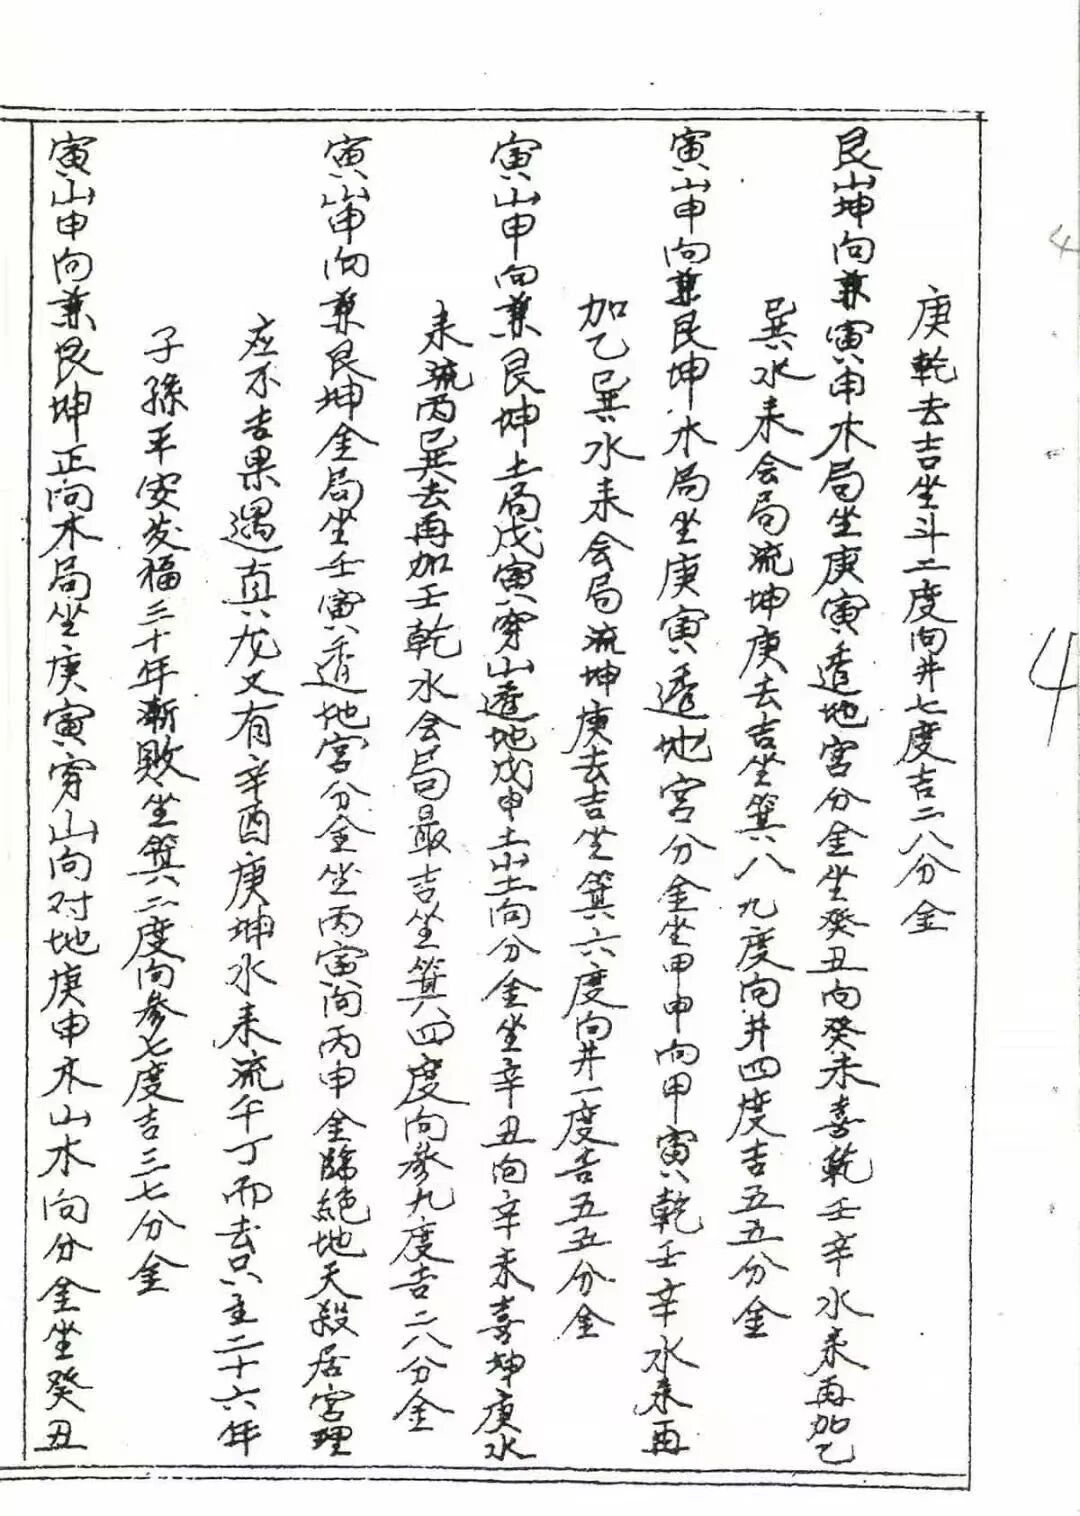 庚乾去吉坐斗二度向井七度吉二八分金
艮山坤向兼寅申木局坐庚寅透地宫分金坐癸丑向癸未喜乾壬辛水来再加乙
巽水来会局流坤庚去吉坐箕八九度向井四度吉五五分金
寅山申向兼艮坤水局坐庚寅透地宫分金坐甲申向甲寅乾壬辛水来再
加乙巽水来会局流坤庚去吉坐箕六度向井一度吉五五分金
寅山申向兼艮坤土局戊寅穿山透地戊申土山土向分金坐辛丑向辛未喜坤庚水
来流丙巽去再加壬乾水会局最吉坐箕四度向参九度吉二八分金
寅山申向兼艮坤金局坐壬寅透地宫分金坐丙寅向丙申金臨絶地天殺居宫理
应不吉果遇真龙又有辛酉庚坤水来流午丁而去只主二十六年
子孫平安发福三十年漸敗坐箕二度向参七度吉三七分金
寅山申向兼艮坤正向木局坐庚寅穿山向对地庚申木山木向分金坐癸丑
4
4